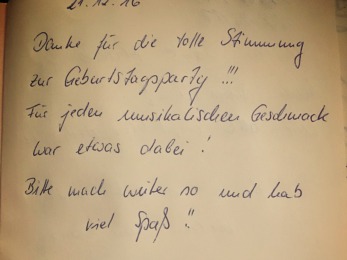 21.12.16
Danke für die tolle Stimmung
zur Geburtstagsparty !!!
Für jeden musikalischen Geschmack
war etwas dabei !
Bitte mach weiter so und hab
viel Spaß !!